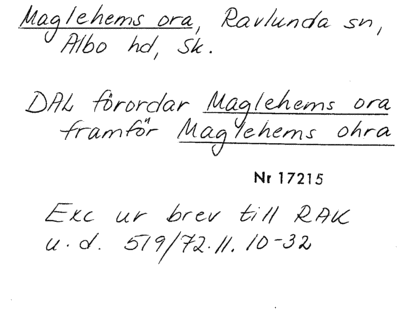 Maglehems ora, Ravlunda sn,
Albo hd, Sk.
DAL förordar Maglehems ora
framför Maglehems ohra
Nr 17215
Exc ur brev till RAK
u.d. 519/72.11.10-32